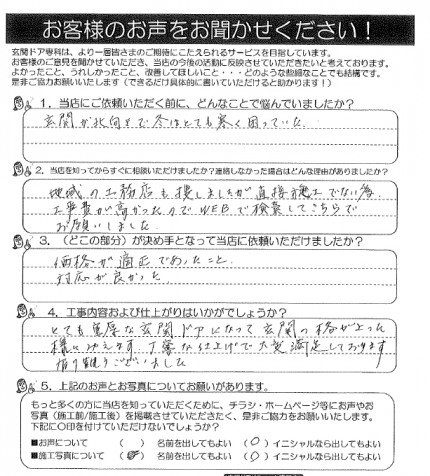 お客様のお声をお聞かせください！
玄関ドア専科は、より一層皆さまのご期待にこたえられるサービスを目指しています。
お客様のご意見を聞かせていただき、当店の今後の活動に反映させていただきたいと考えております。
よかったこと、うれしかったこと、改善してほしいこと・・・どのような些細なことでも結構です。
是非ご協力お願いいたします（できるだけ具体的に書いていただけると助かります！）
1．当店にご依頼いただく前に、どんなことで悩んでいましたか？
玄関が北向きで冬はとても寒く困っていた。
2．当店を知ってからすぐに相談いただけましたか？連絡しなかった場合はどんな理由がありましたか？
地域の工務店も捜しましたが直接施工でない為
工事費が高かったのでWEBで検索してこちらで
お願いしました
3．（どこの部分）が決め手となって当店に依頼いただけましたか？
価格が適正であったこと
対応が良かった
4．工事内容および仕上がりはいかがでしょうか？
とても重厚な玄関ドアになって玄関の格が上った
様に見えます 丁寧な仕上げで大変満足しております
有り難うございました
5．上記のお声とお写真についてお願いがあります。
もっと多くの方に当店を知っていただくために、チラシ・ホームページ等にお声やお
写真（施工前/施工後）を掲載させていただきたく、是非ご協力をお願いいたします。
下記に○印を付けていただけないでしょうか？
■お声について （ ） 名前を出してもよい （○）イニシャルなら出してもよい
■施工写真について （ ） 名前を出してもよい （○）イニシャルなら出してもよい